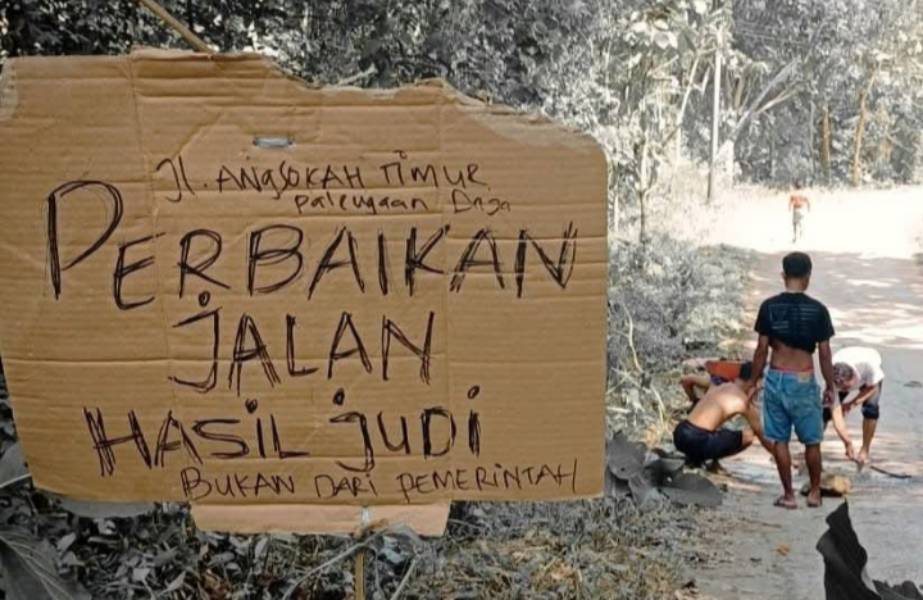 Jl. ANGSOKAH TIMUR
palengaan Daja
PERBAIKAN
JALAN
HASIL JUDI
BUKAN DARI PEMERINTAH